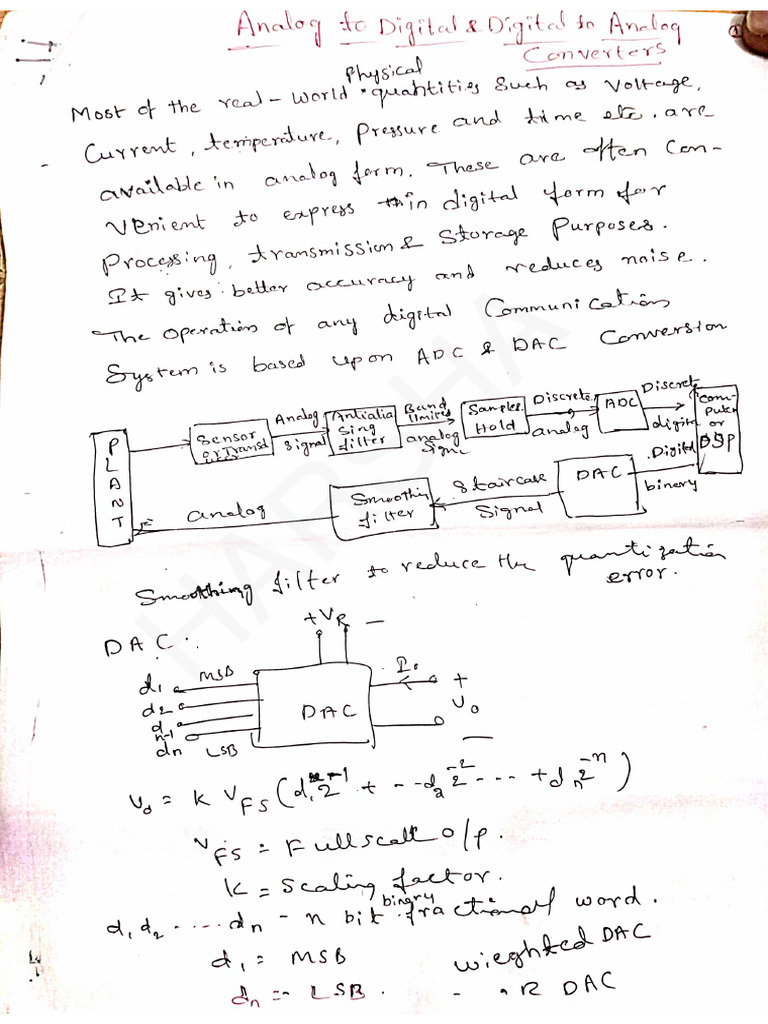 Analog to Digital & Digital to Analog
Converters
①
Physical
Most of the real-world quantities such as voltage,
Current, temperature, pressure and time etc. are
available in analog form. These are often con-
venient to express in digital form for
Processing, transmission & storage purposes.
It gives better accuracy and reduces noise.
The operation of any digital Communication
System is based upon ADC & DAC Conversion
PLANT
Sensor
or Transd
ucer
Analog
Signal
Antialia
sing
filter
Band
limited
analog
Signl
Samples
Hold
Discrete
analog
ADC
Discrete
digitl
Com-
puter
or
DSP
Digital
binary
DAC
Staircase
Signal
Smoothin
filter
analog
Smoothing filter to reduce the quantization
error.
DAC.
+VR –
d1 MSB
d2
d
n-1
dn LSB
DAC
Io
+
Vo
–
Vo = K VFS (d1 2^-1 + - - d2 2^-2 - - - + dn 2^-n)
VFS = Fullscale o/p.
K = Scaling factor.
binary
d1 d2 ..... dn - n bit fractional word.
d1 = MSB
dn = LSB.
wieghted DAC
R DAC
HARSHA